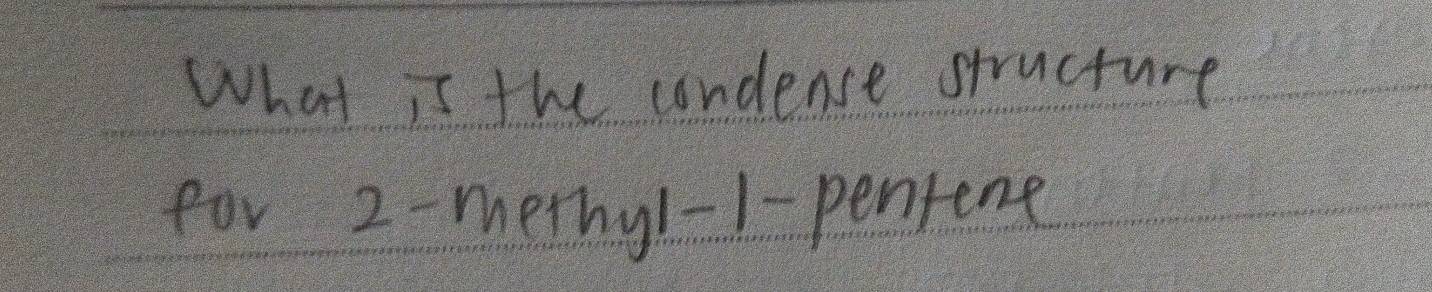 What is the condense structure
for 2-methyl-1-pentene